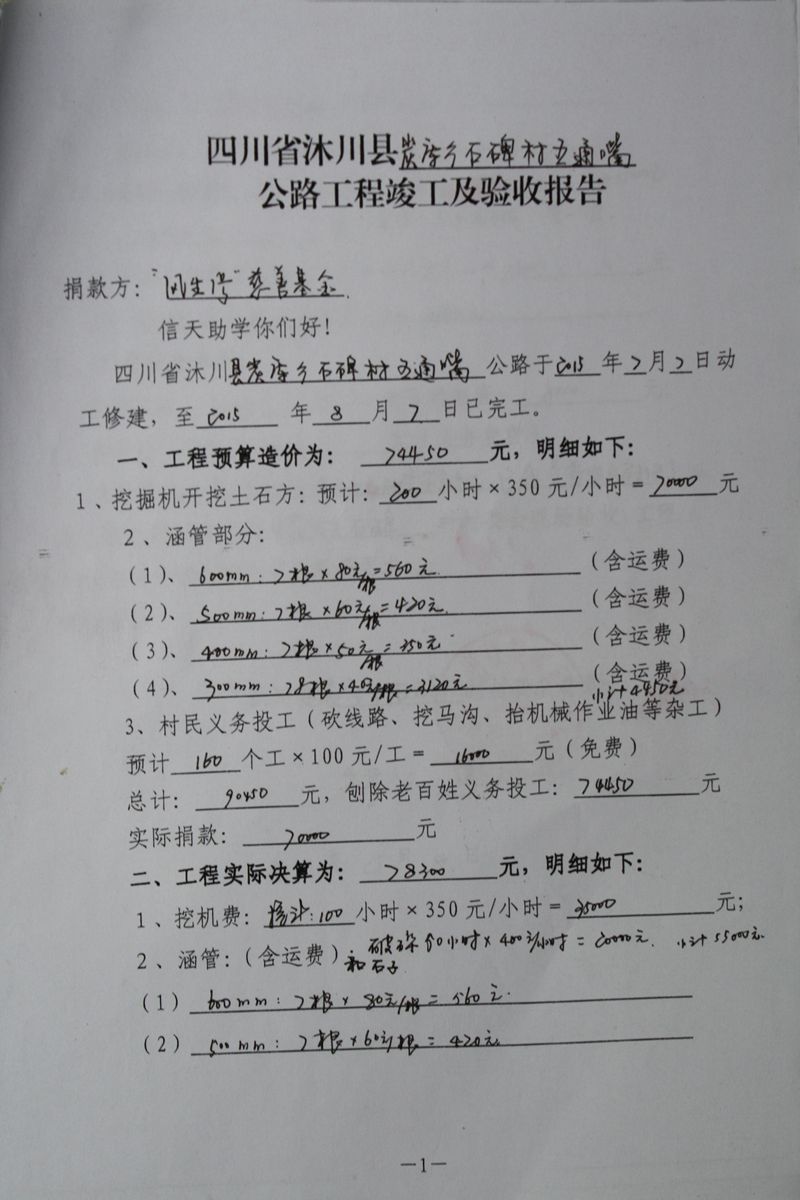 四川省沐川县炭库乡石碑村五通嘴
公路工程竣工及验收报告
捐款方：“风生得”慈善基金
信天助学你们好！
四川省沐川县炭库乡石碑村五通嘴公路于2015年7月2日动
工修建，至2015年8月7日已完工。
一、工程预算造价为：74450元，明细如下：
1、挖掘机开挖土石方：预计：200小时×350元/小时=70000元
2、涵管部分：
（1）、600mm：7根×80元/根=560元（含运费）
（2）、500mm：7根×60元/根=420元（含运费）
（3）、400mm：7根×50元/根=350元（含运费）
（4）、300mm：78根×40元/根=3120元（含运费）
小计4450元
3、村民义务投工（砍线路、挖马沟、抬机械作业油等杂工）
预计160个工×100元/工=16000元（免费）
总计：90450元，刨除老百姓义务投工：74450元
实际捐款：70000元
二、工程实际决算为：78300元，明细如下：
1、挖机费：100小时×350元/小时=35000元；
破碎50小时×400元/小时=20000元 小计55000元
2、涵管：（含运费）和石子
（1）600mm：7根×80元/根=560元
（2）500mm：7根×60元/根=420元
—1—